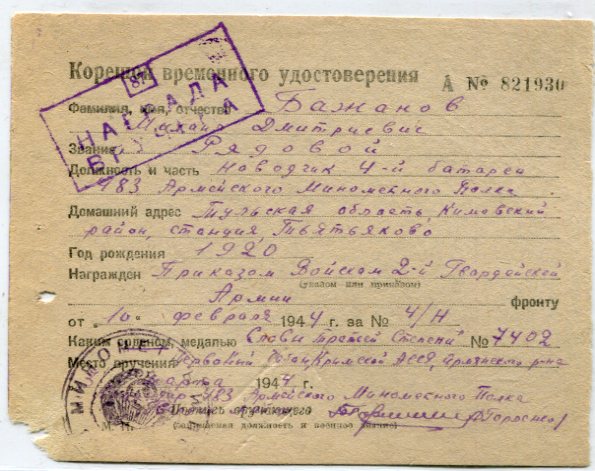 Корешок временного удостоверения
А № 821930
87
НАГРАДА
ВРУЧЕНА
Фамилия, имя, отчество Бажанов
Михаил Дмитриевич
Звание Рядовой
Должность и часть Наводчик 4-й батареи
483 Армейского Минометного Полка
Домашний адрес Тульская область, Кимовский
район, станция Пьятьяково
Год рождения 1920
Награжден Приказом Войскам 2-й Гвардейской
(указом или приказом)
Армии фронту
от „10“ февраля 1944 г. за № 4/Н
Каким орденом, медалью Славы третьей степени № 7402
Место вручения Червоный Крымской АССР, Армянского р-на
марта 1944 г.
483 Армейского Минометного Полка
Подпись вручающего
М. П. (должность и военное звание)
МИНОМЕТ